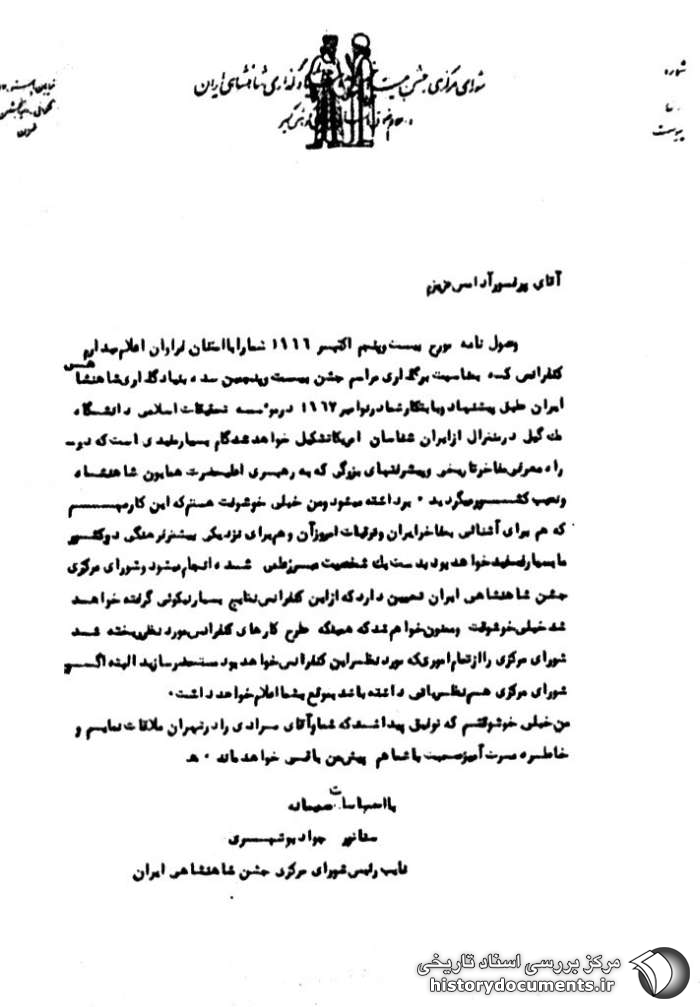 شماره
پیوست
شورای مرکزی جشن
بنیادگذاری شاهنشاهی ایران
تهران
آقای پرفسور آدامس عزیزم
وصول نامه مورخ بیست وپنجم اکتبر ۱۹۶۶ شما را با امتنان فراوان اعلام میدارم
کنفرانسی که بمناسبت برگذاری مراسم جشن بیست وپنجمین سده بنیادگذاری شاهنشاهی
ایران طبق پیشنهاد وبابتکار شما درنوامبر ۱۹۶۷ درموسسه تحقیقات اسلامی دانشگاه
مک گیل درمنترال ازایران شناسان امریکا تشکیل خواهد شد گام بسیار مفیدی است که در
راه معرفی مفاخر تاریخی وپیشرفتهای بزرگی که به رهبری اعلیحضرت همایون شاهنشاه
ونصیب کشور میگردید ۰ برداشته میشود ومن خیلی خوشوقت هستم که این کار مهم
که هم برای آشنائی بمفاخر ایران وترقیات امروز آن وهم برای نزدیکی بیشتر فرهنگی دوکشور
ما بسیار مفید خواهد بود بدست یک شخصیت مبرز علمی شده انجام میشود وشورای مرکزی
جشن شاهنشاهی ایران یقین دارد که از این کنفرانس نتایج بسیار نیکوئی گرفته خواهد
شد خیلی خوشوقت وممنون خواهم شد که همینکه طرح کارهای کنفرانس مورد نظر ریخته شد
شورای مرکزی را از تمام اموری که مورد نظر این کنفرانس خواهد بود مستحضر سازید البته اگر
شورای مرکزی هم نظریاتی داشته باشد بموقع بشما اعلام خواهد داشت۰
من خیلی خوشوقتم که توفیق پیدا شد که شما وآقای مرادی را درتهران ملاقات نمایم و
خاطره مسرت آمیز صحبت با شما هم پیش من باقی خواهد ماند ۰
با احساسات صمیمانه
سناتور جواد بوشهری
نایب رئیس شورای مرکزی جشن شاهنشاهی ایران
مرکز بررسی اسناد تاریخی
historydocuments.ir